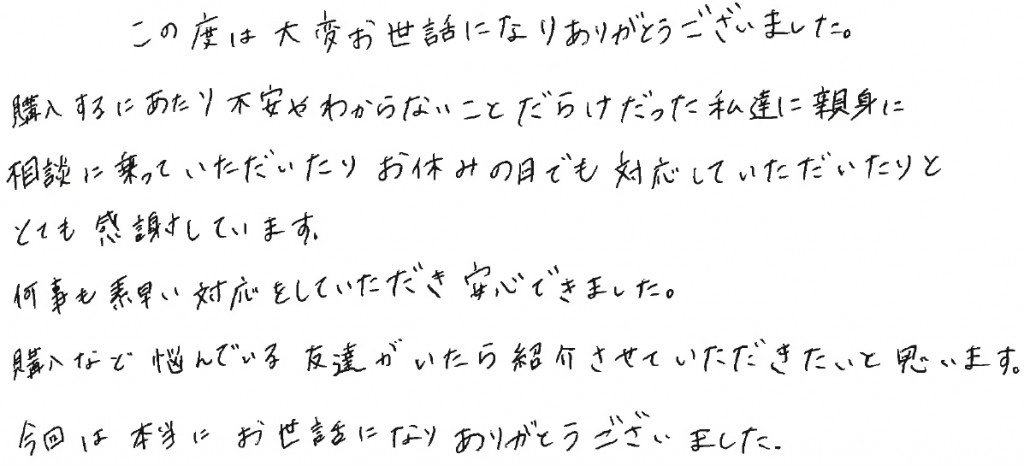 この度は大変お世話になりありがとうございました。
購入するにあたり不安やわからないことだらけだった私達に親身に
相談に乗っていただいたりお休みの日でも対応していただいたりと
とても感謝しています。
何事も素早い対応をしていただき安心できました。
購入など悩んでいる友達がいたら紹介させていただきたいと思います。
今回は本当にお世話になりありがとうございました。